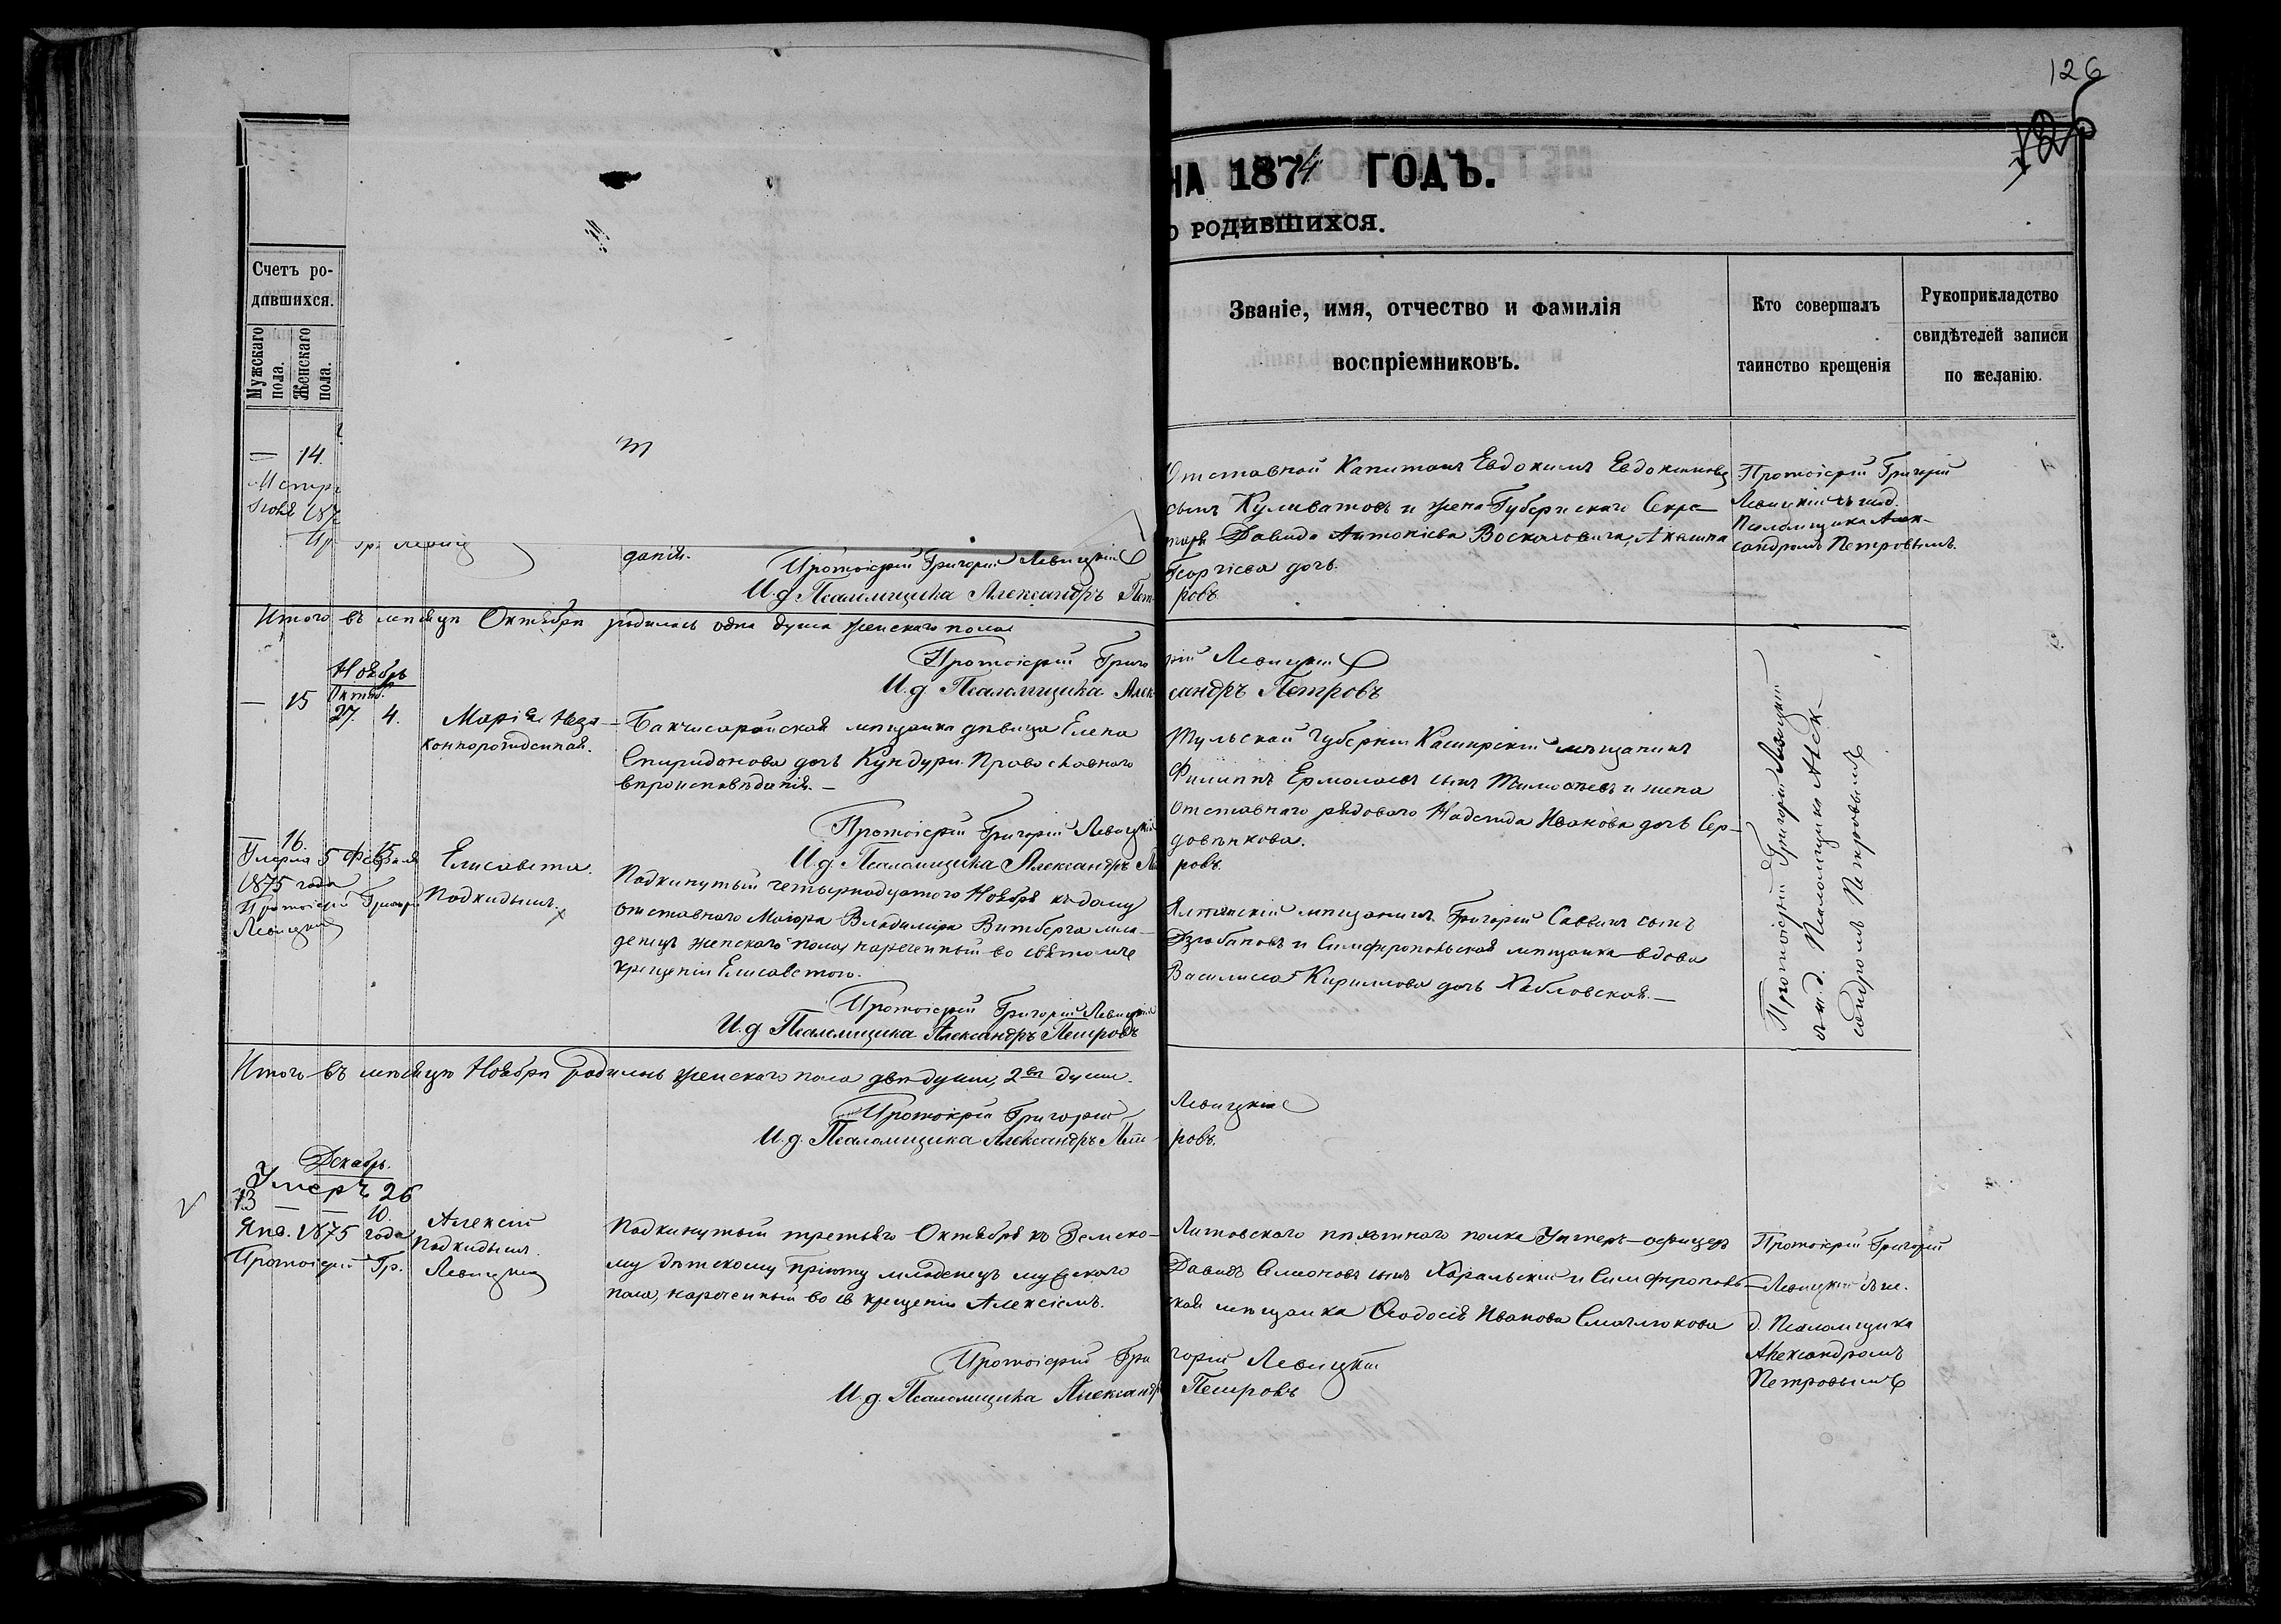 126
НА 1874 ГОДЪ.
О РОДИВШИХСЯ.
Счетъ ро-
дившихся.
Мужскаго пола.
Женскаго пола.
Званіе, имя, отчество и фамилія
воспріемниковъ.
Кто совершалъ
таинство крещенія
Рукоприкладство
свидѣтелей записи
по желанію.
— 14.
Отставной Капитанъ Евдокимъ Евдокимовъ
сынъ Куливатовъ и жена Губернскаго Секре-
таря Давида Антоніева Воскаловича, Акилина
Георгіева дочь.
Протоіерей Григорій
Левицкій съ и.д.
Псаломщика Алек-
сандромъ Петровымъ.
данія.
Протоіерей Григорій Левицкій
И.д. Псаломщика Александръ Пет-ровъ
Итого въ мѣсяцѣ Октябрѣ родилась одна душа женскаго пола
Протоіерей Григорій Левицкій
И.д. Псаломщика Александръ Петровъ
Ноябрь
Октяб.
— 15 27. 4.
Марія неза-
коннорожденная.
Бакчисарайская мѣщанка дѣвица Елена
Спиридонова дочь Кундури. Православнаго
вѣроисповѣданія. —
Тульской губерніи Каширскій мѣщанинъ
Филиппъ Ермолаевъ сынъ Тимофеевъ и жена
отставнаго рядоваго Надежда Иванова дочь Сер-
довѣнкова.
Протоіерей Григорій Левицкій
И.д. Псаломщика Александръ Петровъ.
16. 15
Умерла 5 Февраля
1875 года
Протоіерей Григорій
Левицкій
Елисавета.
Подкидышъ.
Подкинутый четырнадцатого Ноября къ дому
отставнаго Маіора Владиміра Витберга мла-
денецъ женскаго пола, нареченный во святомъ
крещеніи Елисаветою.
Ялтинскій мѣщанинъ Григорій Саввинъ сынъ
Дзюбановъ и Симферопольская мѣщанка вдова
Василиса Кириллова дочь Хабловская. —
Протоіерей Григорій Левицкій
съ и.д. Псаломщика Алек-
сандромъ Петровымъ
Протоіерей Григорій Левицкій
И.д. Псаломщика Александръ Петровъ
Итого въ мѣсяцѣ Ноябрѣ родилось женскаго пола двѣ души, 2вѣ души.
Протоіерей Григорій Левицкій
И.д. Псаломщика Александръ Петровъ.
Декабрь.
Умеръ 26
13 — — 10.
Янв. 1875 года
Протоіерей Гр. Левицкій
Алексій
Подкидышъ.
Подкинутый третьяго Октября къ Земско-
му дѣтскому пріюту младенецъ мужскаго
пола, нареченный во св крещеніи Алексіемъ.
Литовскаго пѣхотнаго полка Унтеръ-офицеръ
Давидъ Семеновъ сынъ Харальскій и Симферополь-
ская мѣщанка Ѳеодосія Иванова Смаглюкова
Протоіерей Григорій
Левицкій съ и.
д. Псаломщика
Александромъ
Петровымъ
Протоіерей Григорій Левицкій
И.д. Псаломщика Александръ Петровъ